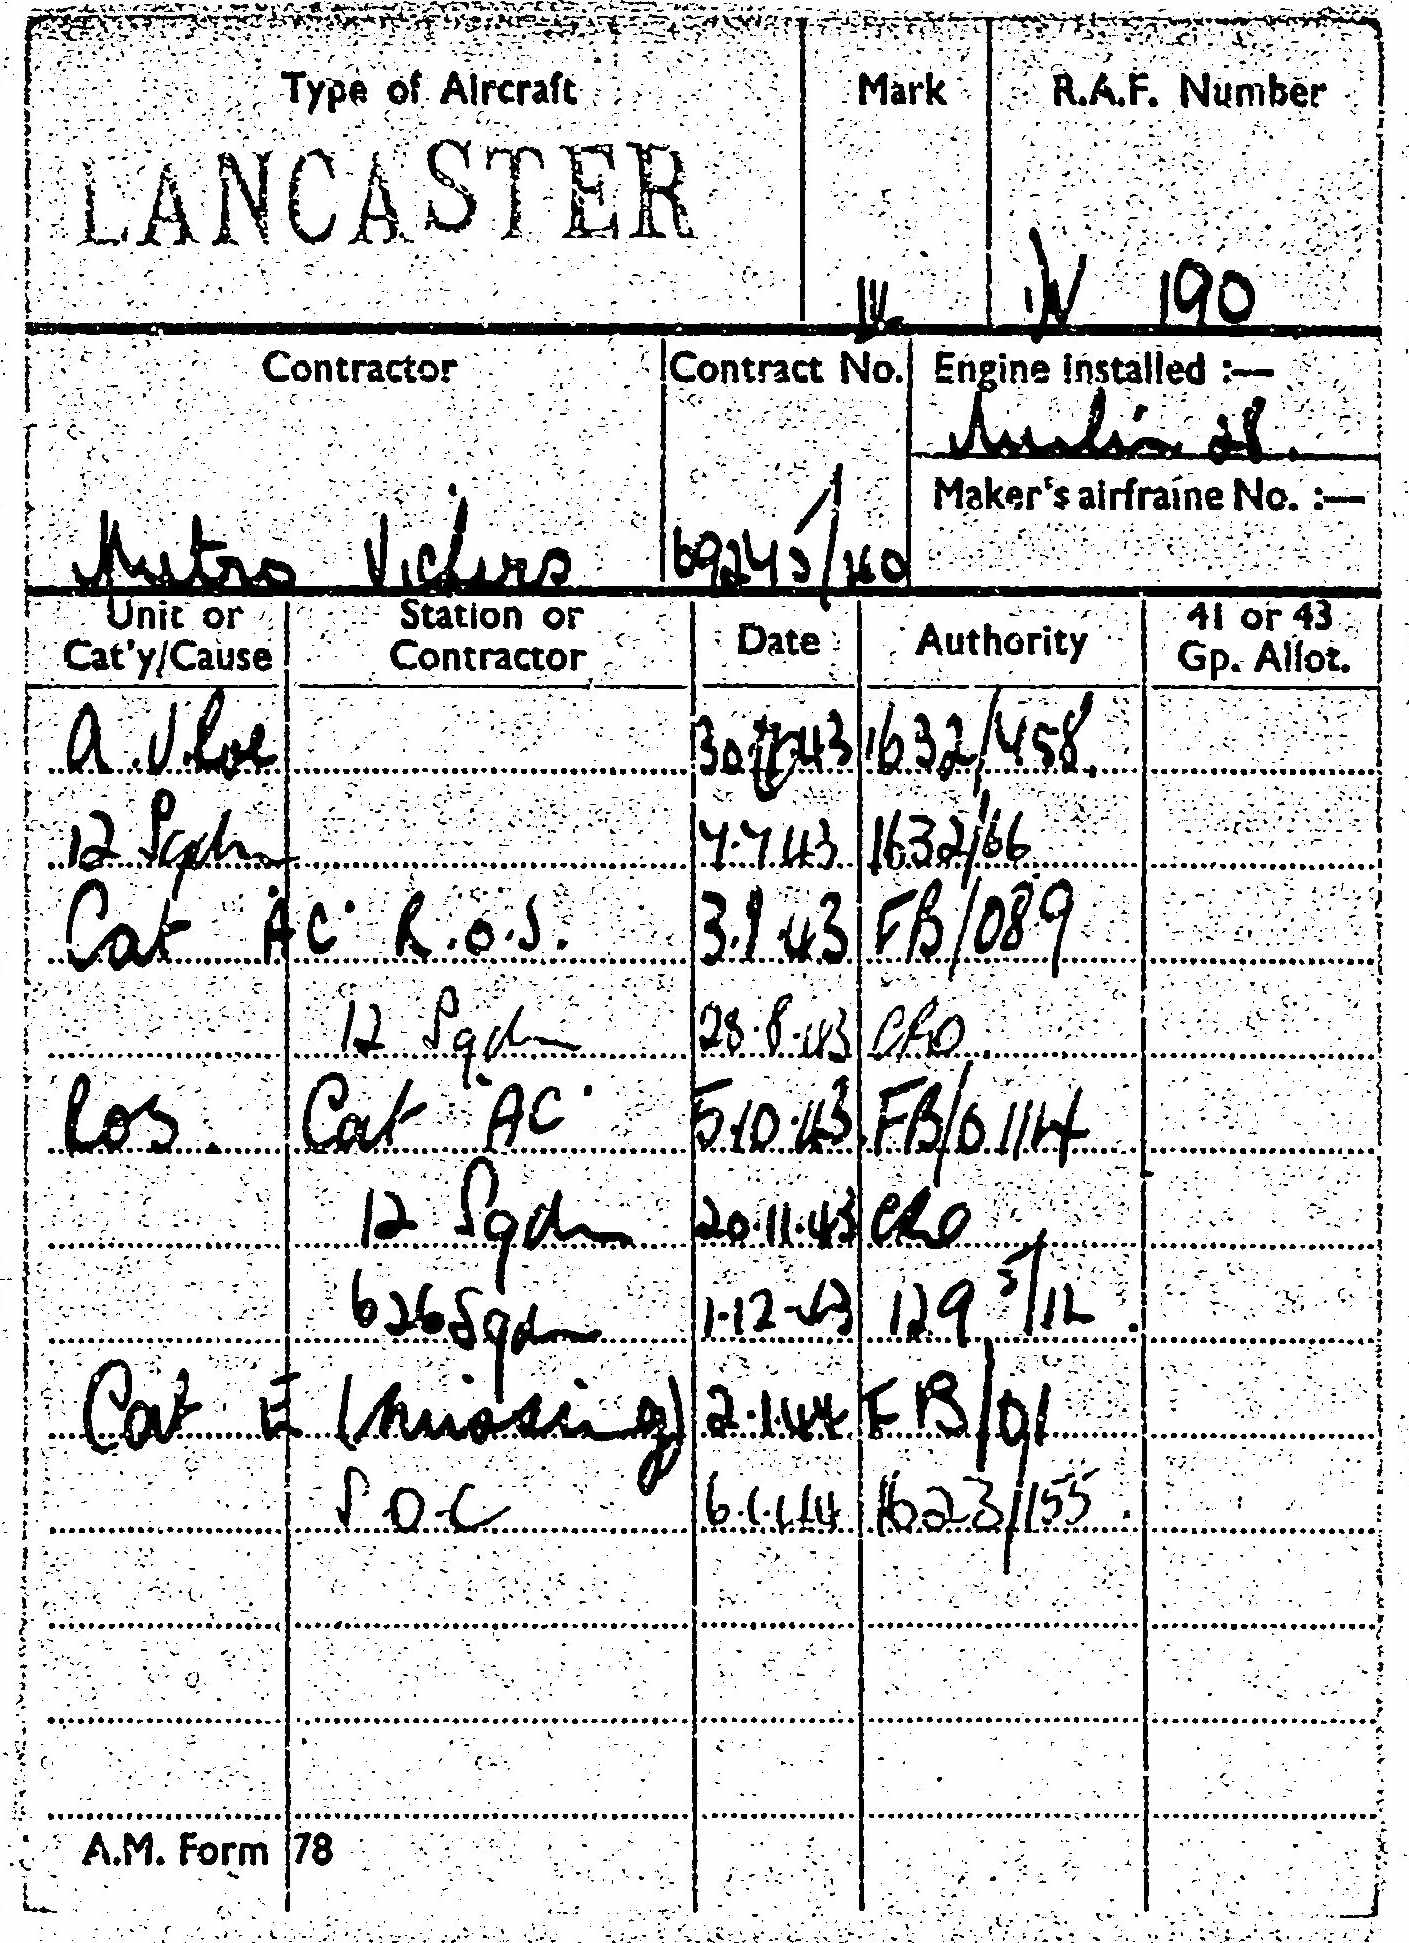 Type of Aircraft Mark R.A.F. Number
LANCASTER
190
Contractor Contract No. Engine Installed :—
Merlin 28.
Maker's airframe No. :—
Metro Vickers
Unit or Station or Date Authority 41 or 43
Cat'y/Cause Contractor Gp. Allot.
A.V.Roe 1632/458.
12 Sqdn 7.7.43 1632/66
Cat AC R.O.S. 3.9.43 FB/089
12 Sqdn 28.8.43 CRO
Ros. Cat AC 5.10.43. FB/0114
12 Sqdn 20.11.43 CRO
626 Sqdn 1.12.43 129 5/12.
Cat E (Missing) 2.1.44 FB/01
S.O.C 6.1.44 1623/155.
A.M. Form 78